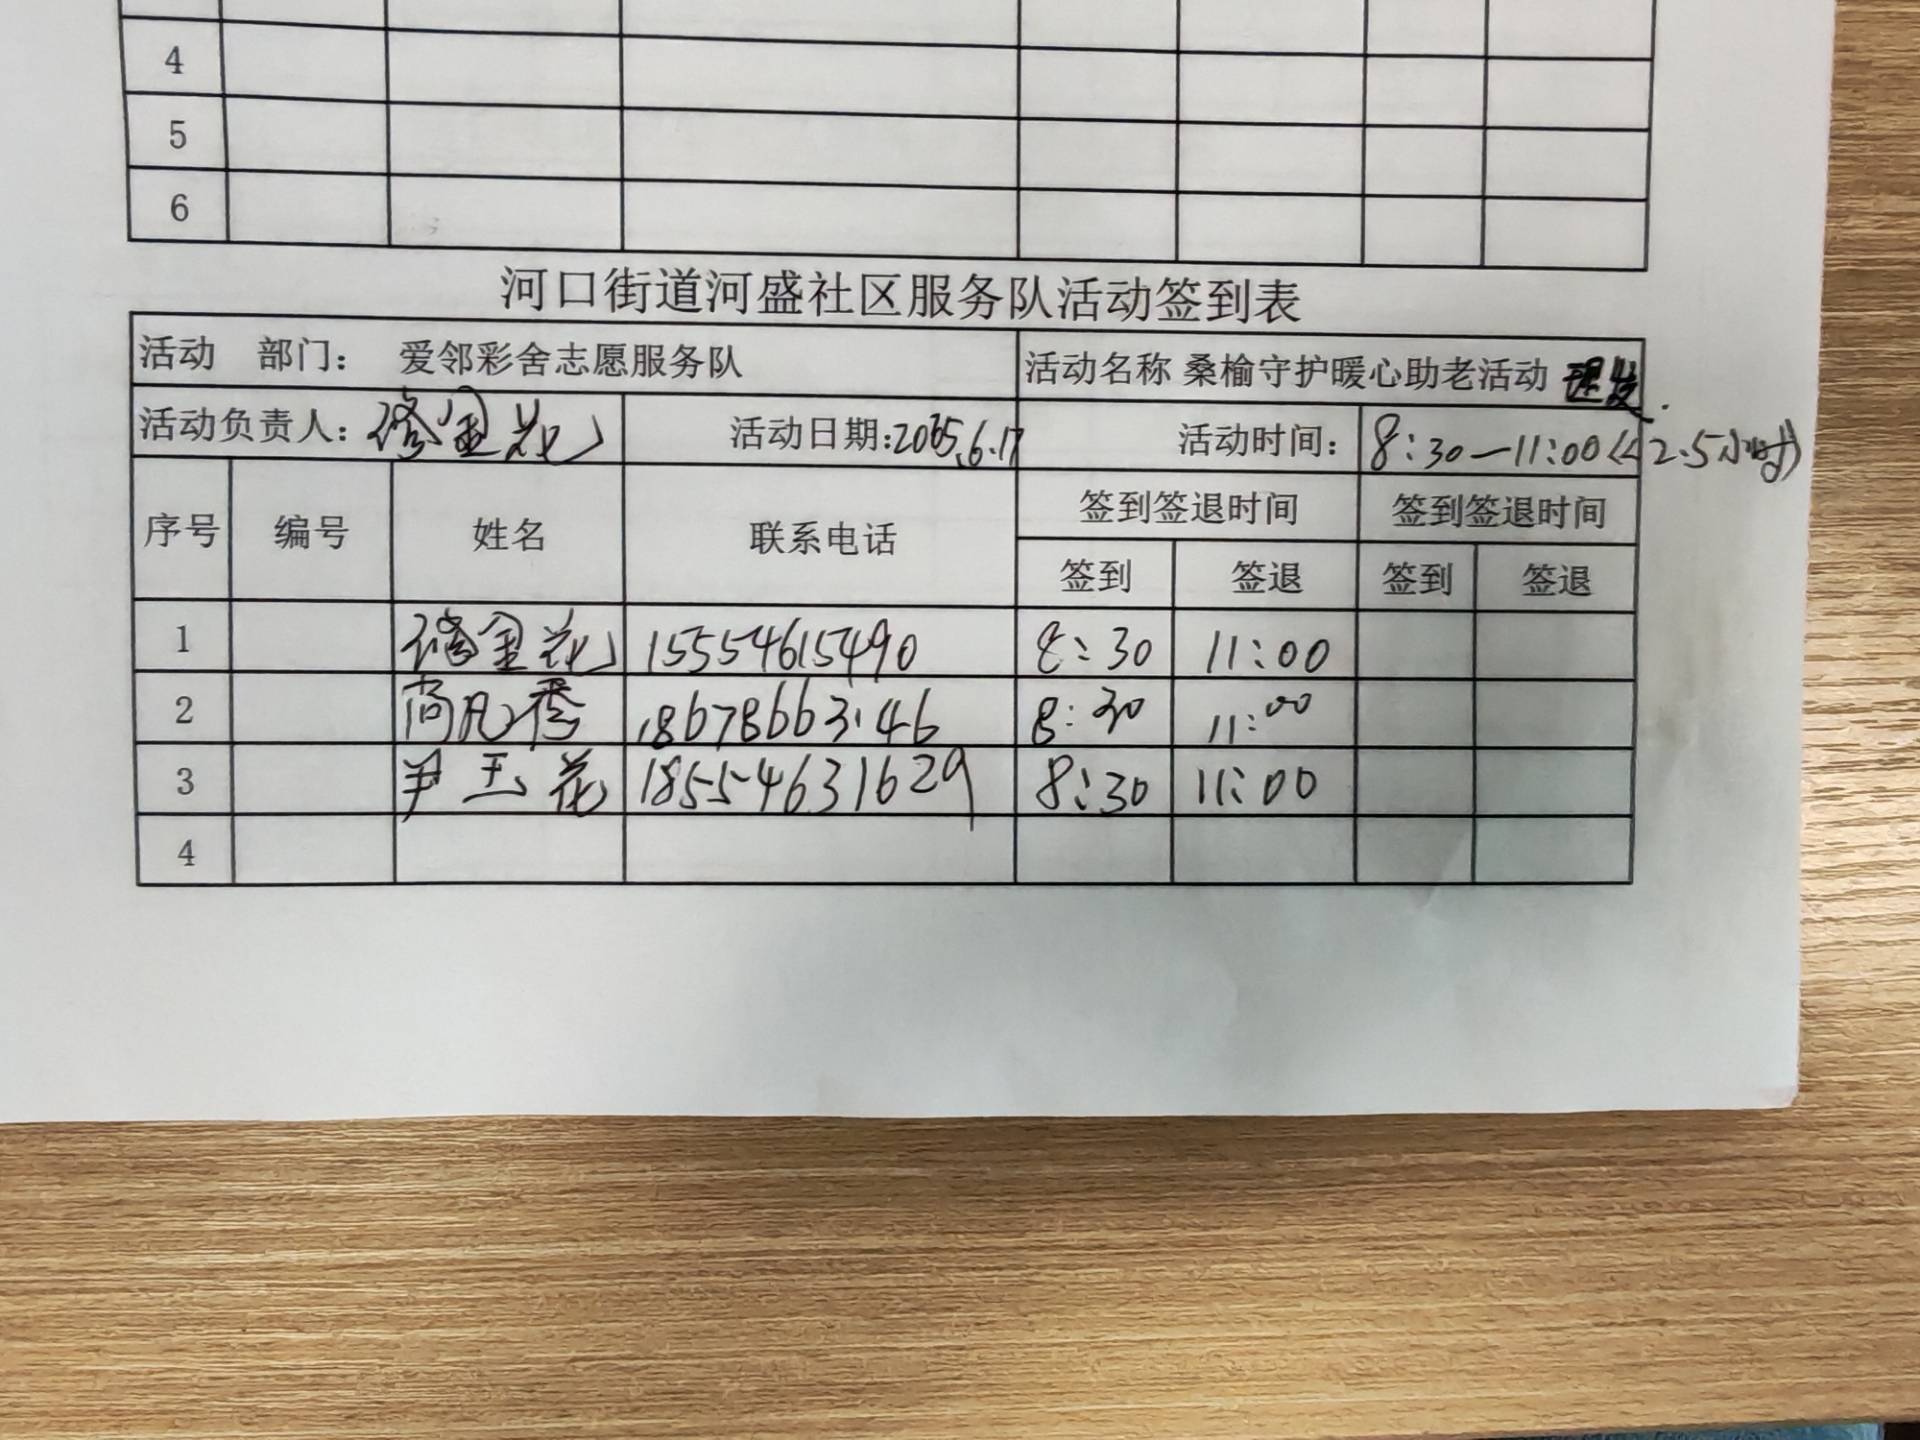 4
5
6
河口街道河盛社区服务队活动签到表
活动 部门： 爱邻彩舍志愿服务队 活动名称 桑榆守护暖心助老活动 理发
活动负责人： 金花 活动日期：2025.6.17 活动时间： 8:30—11:00（2.5小时）
序号 编号 姓名 联系电话 签到签退时间 签到签退时间
签到 签退 签到 签退
1 金花 15554615490 8:30 11:00
2 尚凡秀 18678663146 8:30 11:00
3 尹玉花 18554631629 8:30 11:00
4